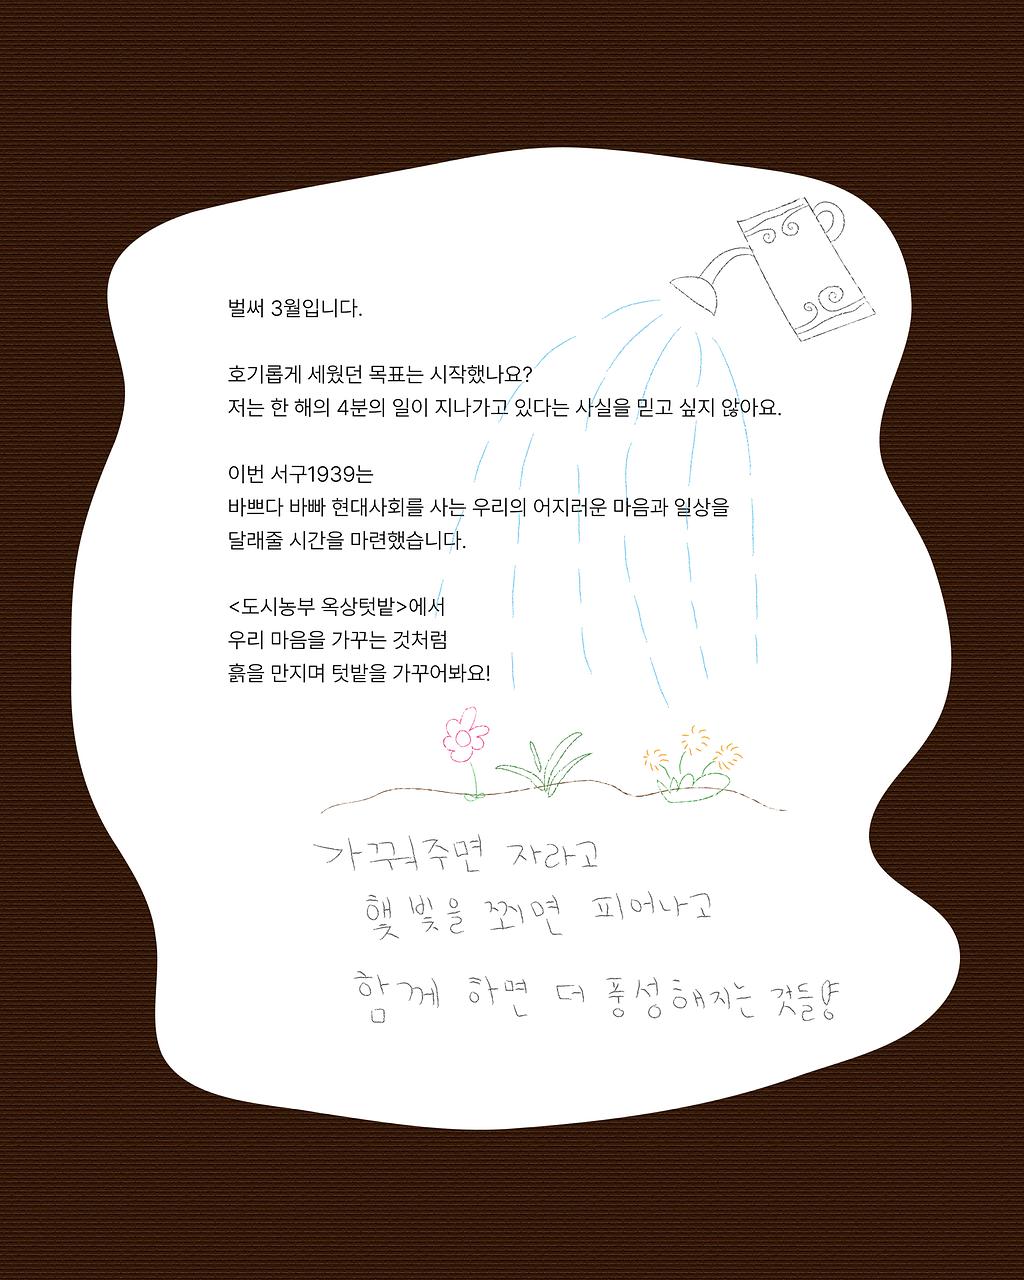 벌써 3월입니다.
호기롭게 세웠던 목표는 시작했나요?
저는 한 해의 4분의 일이 지나가고 있다는 사실을 믿고 싶지 않아요.
이번 서구1939는
바쁘다 바빠 현대사회를 사는 우리의 어지러운 마음과 일상을
달래줄 시간을 마련했습니다.
<도시농부 옥상텃밭>에서
우리 마음을 가꾸는 것처럼
흙을 만지며 텃밭을 가꾸어봐요!
가꿔주면 자라고
햇빛을 쬐면 피어나고
함께 하면 더 풍성해지는 것들